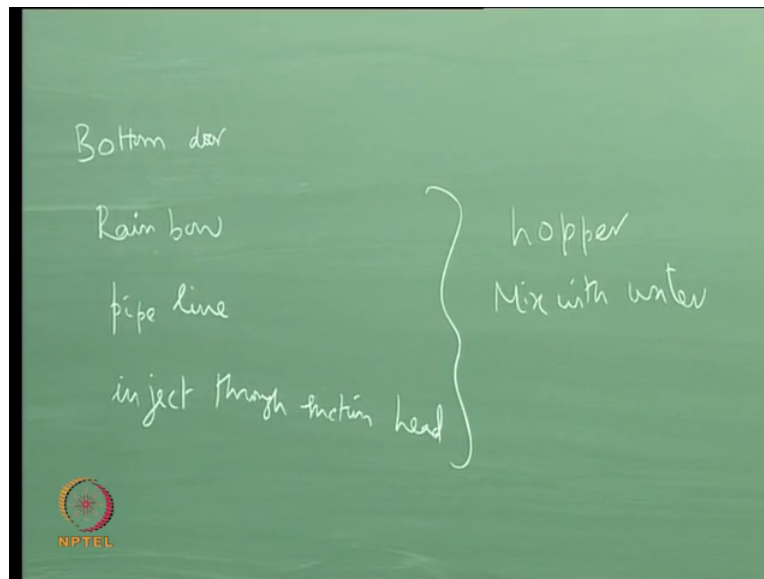 Bottom door
Rain bow
pipe line
inject through suction head
hopper
Mix with water
NPTEL